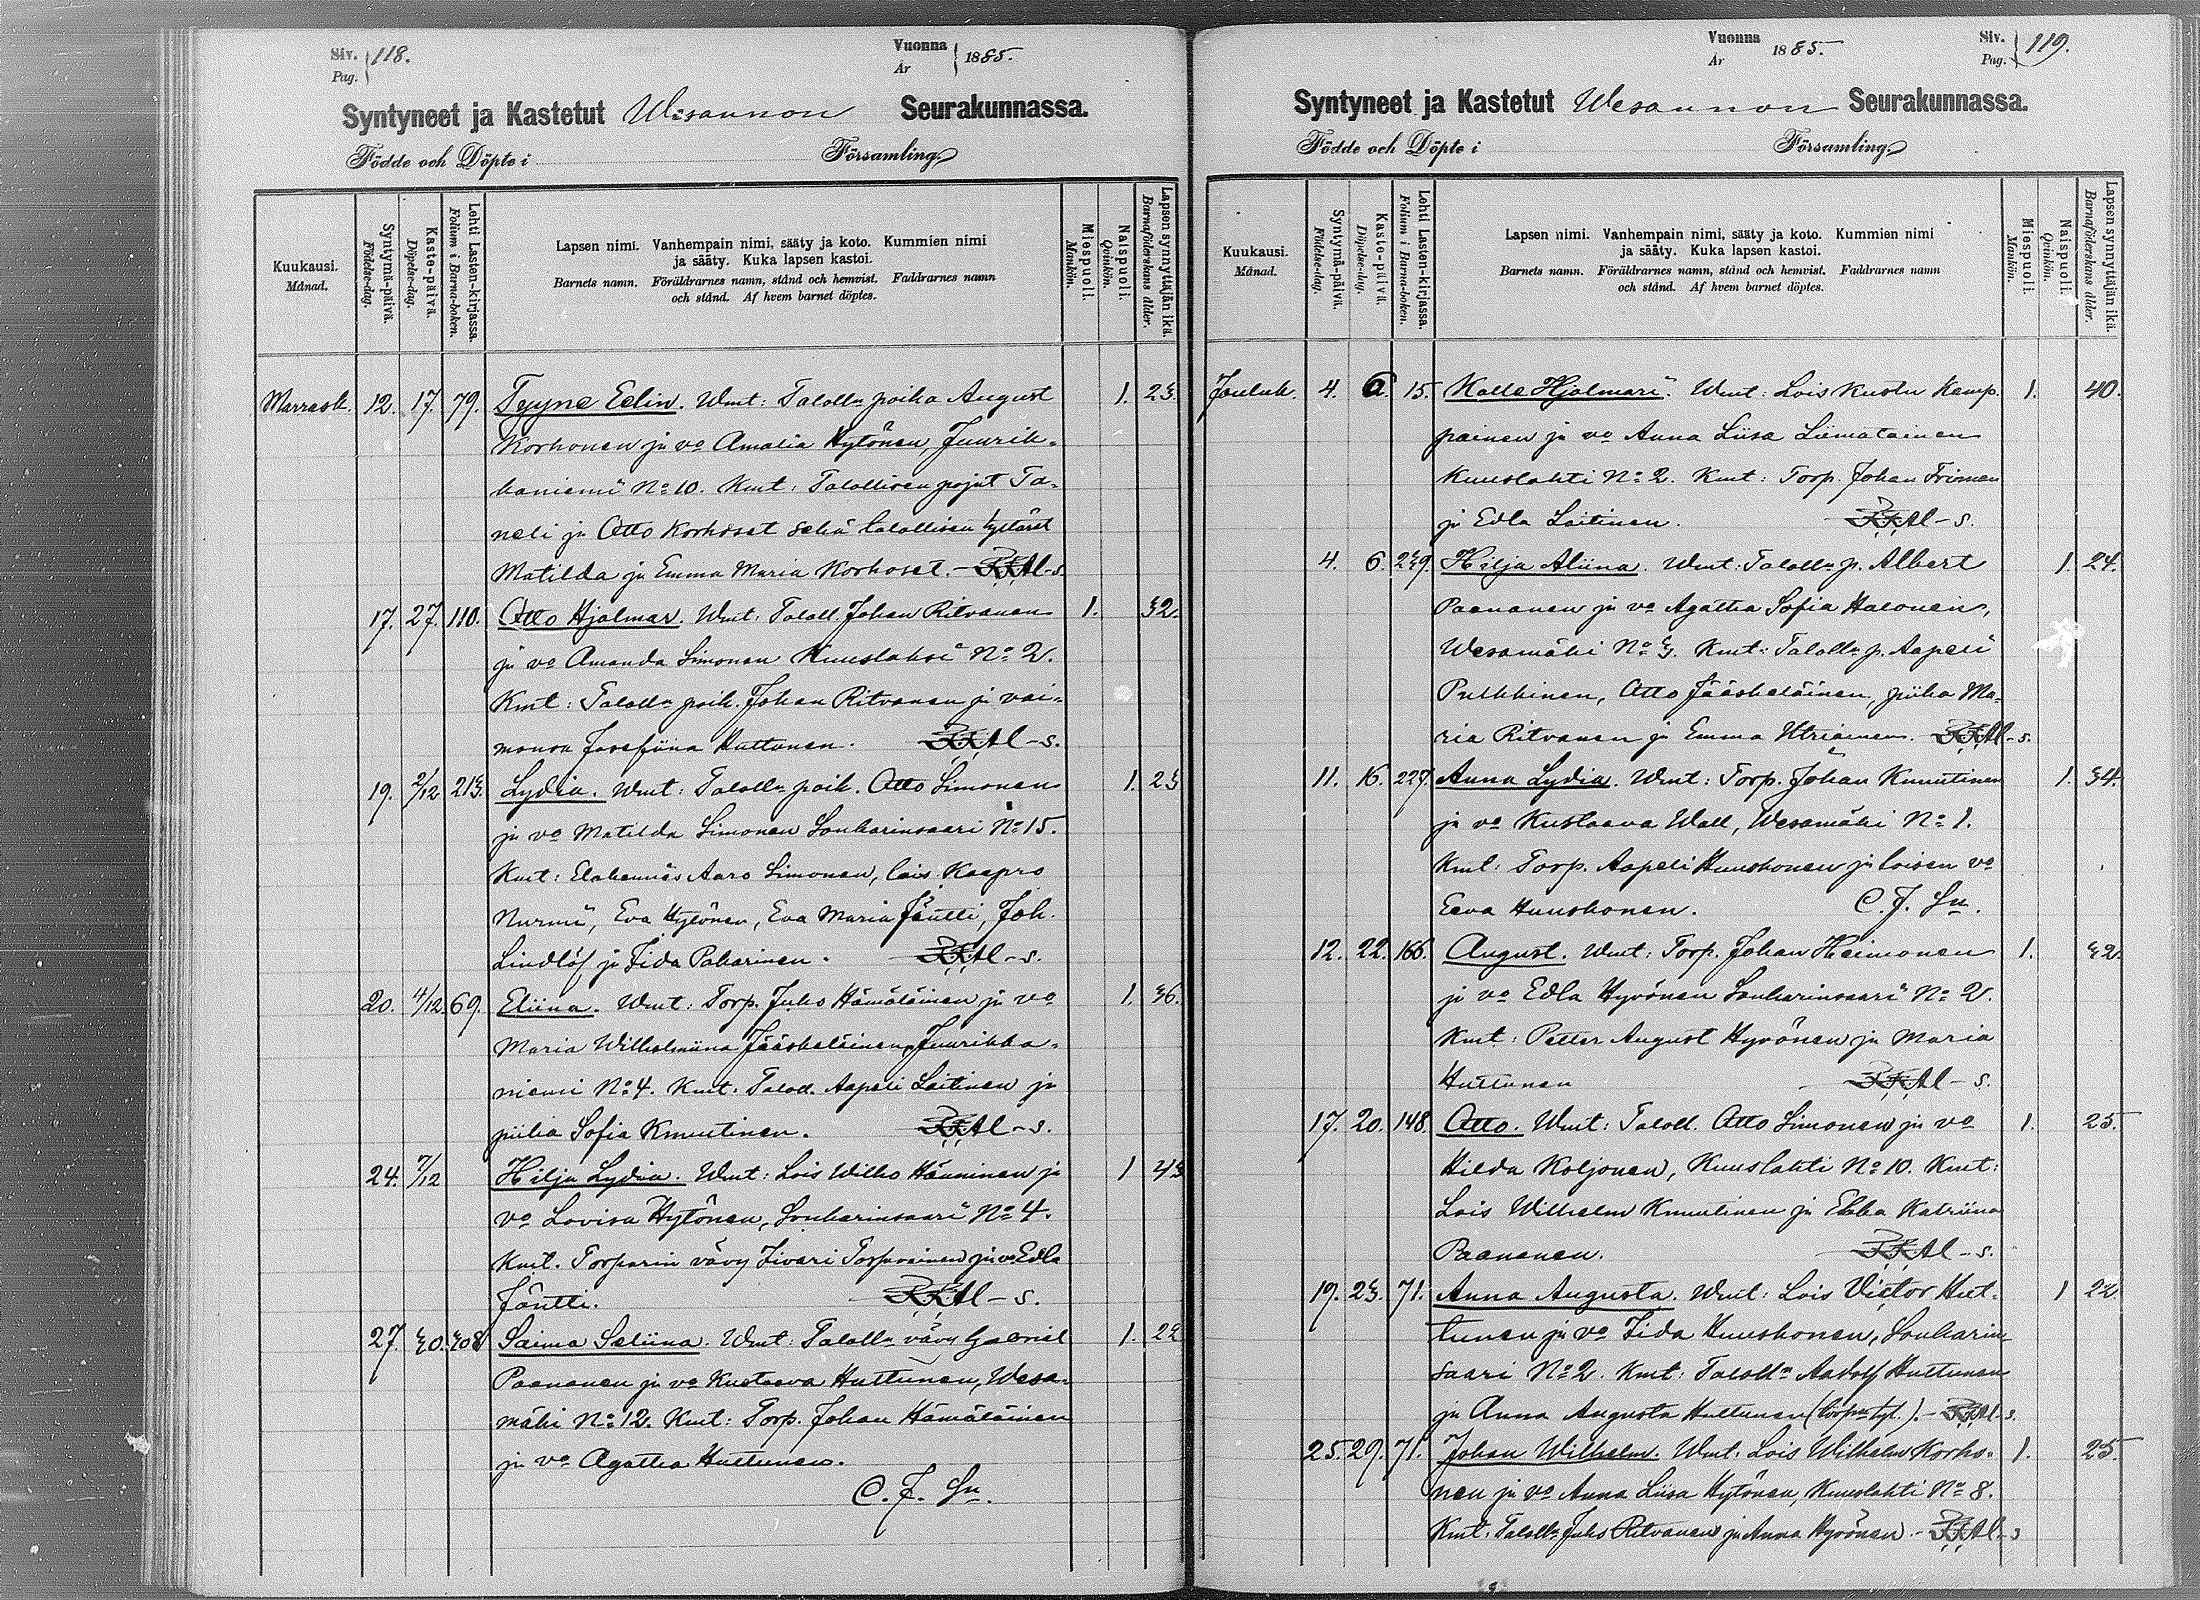 Siv. 118.
Pag.
Vuonna 1885.
År
Syntyneet ja Kastetut Wesannon Seurakunnassa.
Födde och Döpte i Församling.
Kuukausi.
Månad.
Syntymä-päivä.
Födelse-dag.
Kaste-päivä.
Döpelse-dag.
Lehti Lasten-kirjassa.
Folium i Barna-boken.
Lapsen nimi. Vanhempain nimi, sääty ja koto. Kummien nimi
ja sääty. Kuka lapsen kastoi.
Barnets namn. Föräldrarnes namn, stånd och hemvist. Faddrarnes namn
och stånd. Af hvem barnet döptes.
Miespuoli.
Mankön.
Naispuoli.
Qvinkön.
Lapsen synnyttäjän ikä.
Barnaföderskans ålder.
Marrask. 12. 17. 79. Tyyne Eelin. Wmt: Talolln poika August 1. 23.
Korhonen ja vo Amalia Hytönen, Juurik-
kaniemi No 10. Kmt: Talollisen pojat Ta-
neli ja Otto Korhoset sekä talollisen tyttäret
Matilda ja Emma Maria Korhoset. - Al-s.
17. 27. 110. Otto Hjalmar. Wmt: Taloll. Johan Ritvanen 1. 32.
ja vo Amanda Simonen Kuuslahti No 2.
Kmt: Talolln poik. Johan Ritvanen ja vai-
monsa Josefiina Huttunen. Al-s.
19. 2/12 213. Lydia. Wmt: Talolln poik. Otto Simonen 1. 23
ja vo Matilda Simonen Sonkarinsaari No 15.
Kmt: Elakemies Aaro Simonen, lois Kaapro
Nurmi, Eva Hytönen, Eva Maria Jäntti, Joh.
Lindlöf ja Fida Pakarinen. Al-s.
20. 4/12 69. Eliina. Wmt: Torp. Juho Hämäläinen ja vo 1. 36.
Maria Wilhelmiina Jääskeläinen, Juurikka-
niemi No 4. Kmt: Taloll. Aapeli Laitinen ja
piika Sofia Knuutinen. Al-s.
24. 7/12 Hilja Lydia. Wmt: Lois Wilho Hänninen ja 1 43
vo Lovisa Hytönen, Sonkarinsaari No 4.
Kmt. Torparin vävy Iivari Torpvainen ja vo Edla
Jäntti. Al-s.
27. 30. 308 Saima Seliina. Wmt: Talolln vävy Gabriel 1. 22
Paananen ja vo Kustaava Huttunen, Wesa-
mäki No 12. Kmt: Torp. Johan Hämäläinen
ja vo Agatha Huttunen.
C. F. Sn.
Vuonna 1885.
År
Siv. 119.
Pag.
Syntyneet ja Kastetut Wesannon Seurakunnassa.
Födde och Döpte i Församling.
Kuukausi.
Månad.
Syntymä-päivä.
Födelse-dag.
Kaste-päivä.
Döpelse-dag.
Lehti Lasten-kirjassa.
Folium i Barna-boken.
Lapsen nimi. Vanhempain nimi, sääty ja koto. Kummien nimi
ja sääty. Kuka lapsen kastoi.
Barnets namn. Föräldrarnes namn, stånd och hemvist. Faddrarnes namn
och stånd. Af hvem barnet döptes.
Miespuoli.
Mankön.
Naispuoli.
Qvinkön.
Lapsen synnyttäjän ikä.
Barnaföderskans ålder.
Jouluk. 4. 6. 15. Kalle Hjalmari. Wmt: Lois Kustu Kemp- 1. 40.
painen ja vo Anna Liisa Liimatainen
Kuuslahti No 2. Kmt: Torp. Johan
ja Edla Laitinen. Al-s.
4. 6. 239. Hilja Aliina. Wmt: Talolln p. Albert 1. 24.
Paananen ja vo Agatha Sofia Halonen,
Wesamäki No 3. Kmt: Talolln p. Aapeli
Pulkkinen, Otto Jääskeläinen, piika Ma-
ria Ritvanen ja Emma Utriainen. Al-s.
11. 16. 227. Anna Lydia. Wmt: Torp. Johan Knuutinen 1. 34.
ja vo Kustaava Wall, Wesamäki No 1.
Kmt: Torp. Aapeli Huuskonen ja loisen vo
Eeva Huuskonen. C. F. Sn.
12. 22. 166. August. Wmt: Torp. Johan Heimonen 1. 32
ja vo Edla Hyvönen Sonkarinsaari No 2.
Kmt: Petter August Hyvönen ja Maria
Huttunen Al-s.
17. 20. 148. Otto. Wmt: Taloll. Otto Simonen ja vo 1. 25.
Hilda Koljonen, Kuuslahti No 10. Kmt:
Lois Wilhelm Knuutinen ja Ebba Katriina
Paananen. Al-s.
19. 23. 71. Anna Augusta. Wmt: Lois Victor Hut- 1 22
tunen ja vo Fida Huuskonen, Sonkarin-
saari No 2. Kmt: Talolln Aadolf Huttunen
ja Anna Augusta Huttunen (torpn tyt.). - Al-s.
25. 29. 71. Johan Wilhelm. Wmt: Lois Wilhelm Korho- 1. 25.
nen ja vo Anna Liisa Hytönen, Kuuslahti No 8.
Kmt: Talolln Juho Ritvanen ja Anna Hyvönen. - Al-s